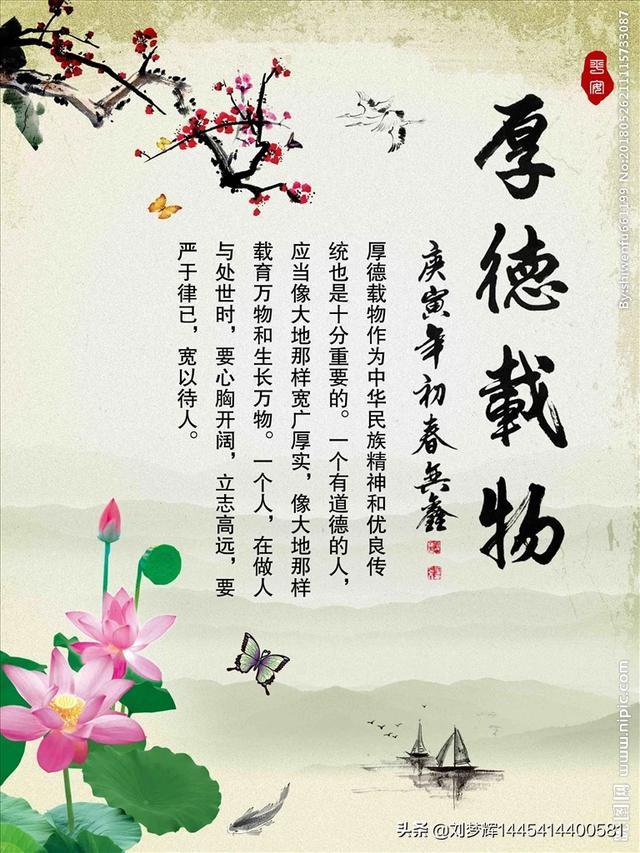 平安
厚德載物
庚寅年初春兵鑫
厚德载物作为中华民族精神和优良传
统也是十分重要的。一个有道德的人，
应当像大地那样宽广厚实，像大地那样
载育万物和生长万物。一个人，在做人
与处世时，要心胸开阔，立志高远，要
严于律已，宽以待人。
By:shiwenfu661199 No:20180526211115733087
昵图网 www.nipic.com
头条 @刘梦辉1445414400581